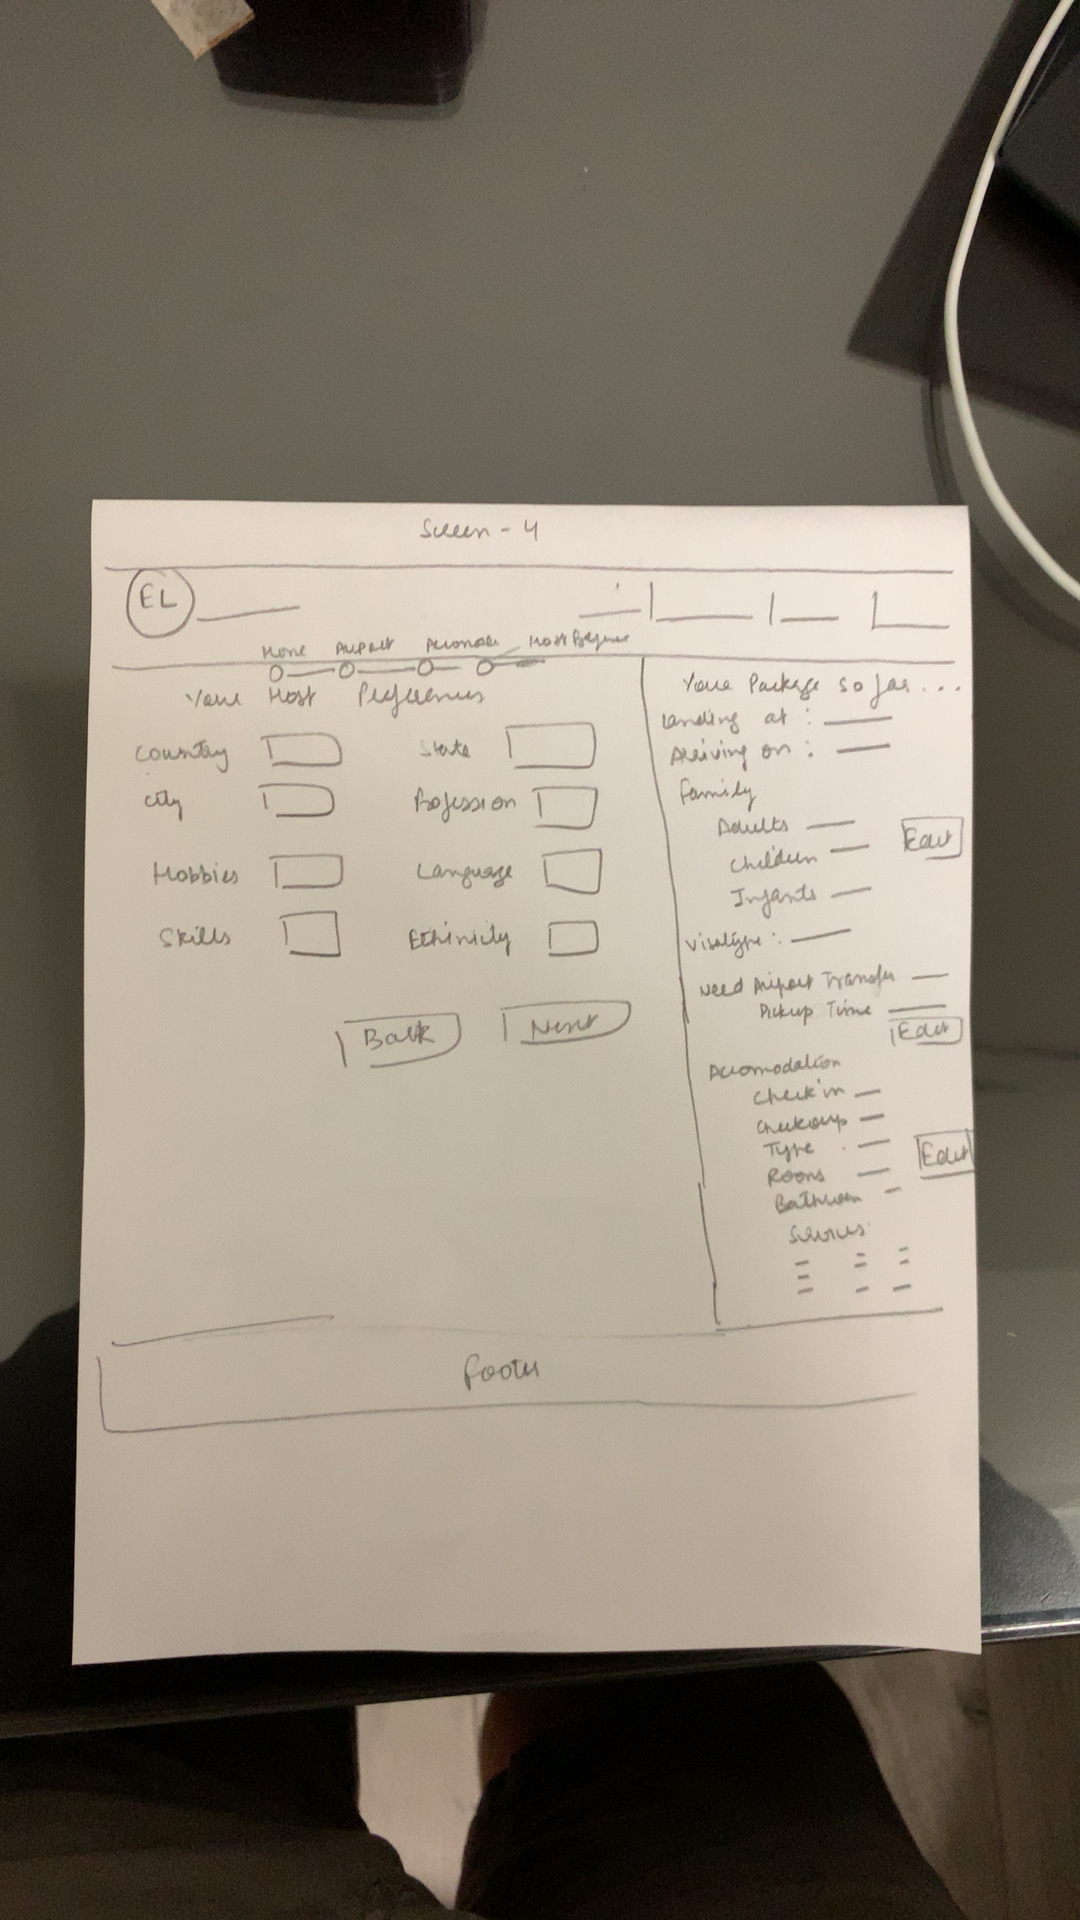 Screen - 4
EL
Home Airport Accomoda Host Prefernce
Your Host Preferences
Country State
City Profession
Hobbies Language
Skills Ethinicity
Back Next
Your Package so far...
Landing at :
Arriving on :
Family
Adults
Children
Infants
Edit
Visatype :
Need Airport Transfer
Pickup Time
Edit
Accomodation
Check in
Type
Rooms
Edit
Bathroom
Services
Footer